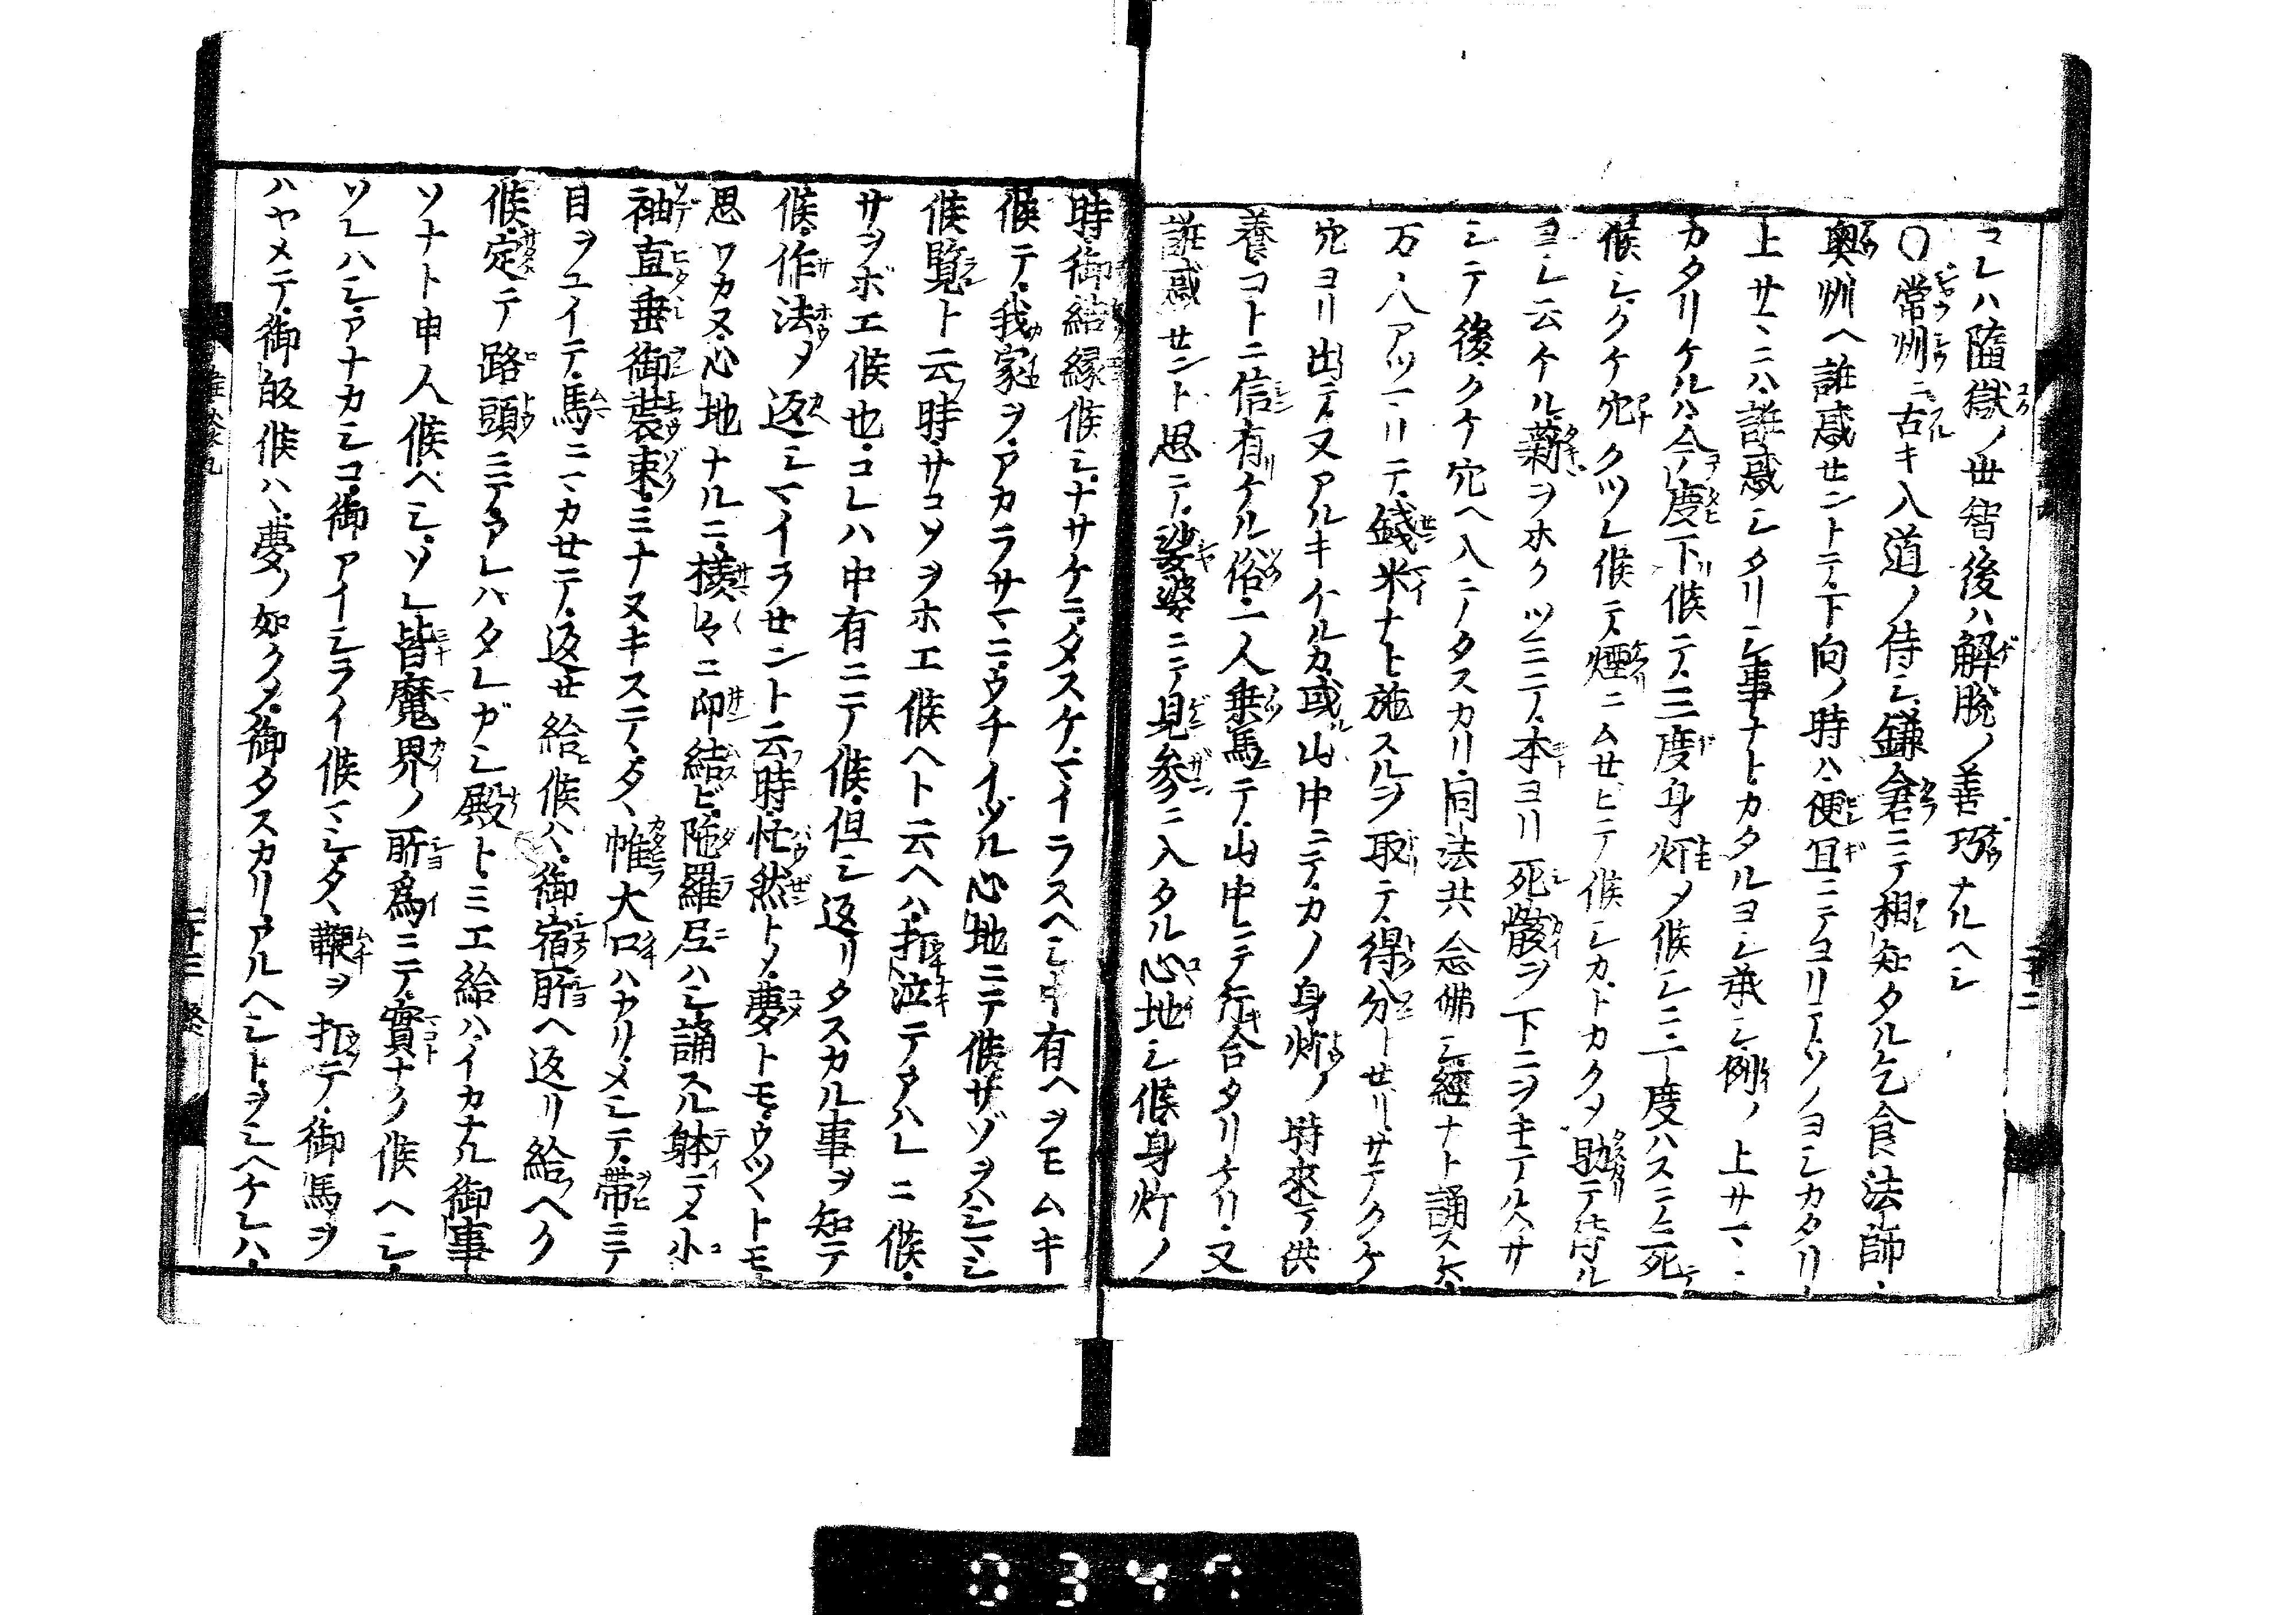 コレハ隨獄ノ世智後ハ解脱ノ善巧ナルヘシ
〇常州ニ古キ入道ノ侍シ鎌倉ニテ相知タル乞食法師
奥州ヘ誑惑セントテ下向ノ時ハ便冝ニテヨリテソノヨシカタリ
上サマニハ誑惑シタリシ事ナトカタルヨシ承シ例ノ上サマニ
カタリケルハ今度下候テ三度身灯メ候シニ二度ハステニ死
候シクケ穴クツレ候テ煙ニムセヒテ候シカトカクメ助テ侍ル
ヨシ云ケル薪ヲホクツミテ本ヨリ死骸ヲ下ニヲキテルヘサ
シテ後クケ穴ヘ入ニノタスカリ同法共念佛シ經ナト誦スケ
万人アツマリテ錢米ナト施スルヲ取テ得分トセリサテクケ
穴ヨリ出テ又アルキケルカ或山中ニテカノ身灯ノ時來テ供
養コトニ信有ケル俗二人乗馬テ山中ニテ行合タリケリ又
誑惑セント思テ娑婆ニテ見参ニ入タル心地シ候身灯ノ
時御結縁候シナサケニタスケマイラスヘシ中有ヘヲモムキ
候テ我家ヲアカラサマニウチイヅル心地ニテ候サゾヲハシマシ
候覧ト云時サコソヲホエ候ヘト云ヘハ打泣テアハレニ候
サヲボエ候也コレハ中有ニテ候但シ返リタスカル事ヲ知テ
候作法メ返シマイラセント云時忙然トメ夢トモウツヽトモ
思ワカヌ心地ナルニ様々ニ印結ビ陁羅尼ハシ誦スル躰テメ小
袖直垂御裝束ミナヌキステタヽ帷大口ハカリメシテ帯ミテ
目ヲユイテ馬ニマカセテ返セ給候ハ御宿所ヘ返リ給ヘク
候定テ路頭ミテアレハタレガシ殿トミエ給ハイカナル御事
ソナト申人候ベシソレ皆魔界ノ所爲ミテ實ナク候ヘシ
ソレハシアナカシコ御アイシライ候マシタヽ鞭ヲ打テ御馬ヲ
ハヤメテ御皈候ハヽ夢ノ如クメ御タスカリアルヘシトヲシヘケレハ
三十二
三十三 終
0347